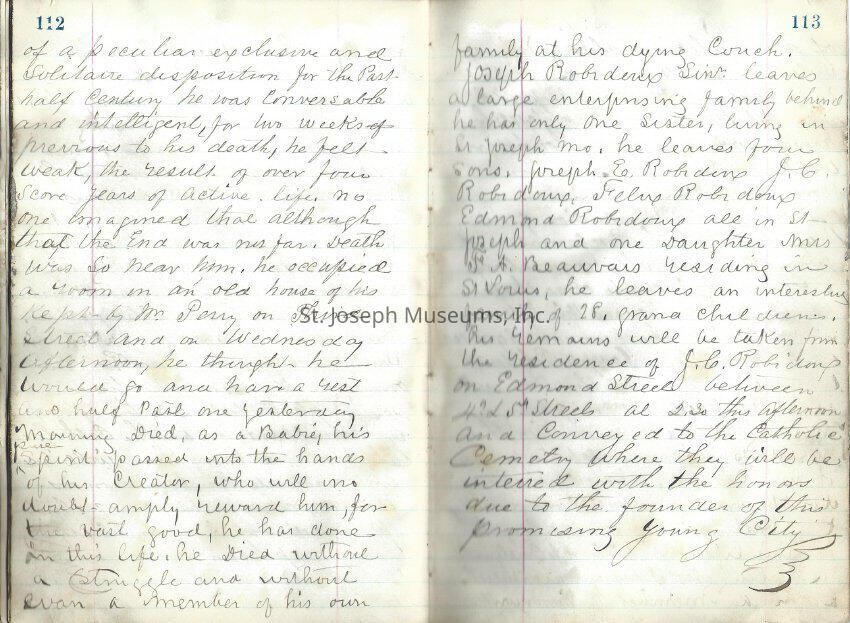 112
of a peculiar exclusive and
Solitaire disposition for the Past
half Century he was Conversable
and intelligent, for two weeks
previous to his death, he felt
weak, the result of over four
Score years of active life. no
one imagined that although
that the End was not far. Death
was So near him. he occupied
a room in an old house of his
kept by Mr. Perry on
Street and on Wednesday
afternoon, he thought he
would go and have a rest
and half Past one yesterday
Morning Died, as a Babie, his
Spirit passed into the hands
of his Creator, who will no
doubt amply reward him, for
the vast good, he has done
in this life. he Died without
a Struggle and without
evan a member of his own
113
family at his dying Couch.
Joseph Robidoux Sinr. leaves
a large enterprising family behind
he has only one Sister, living in
St Joseph Mo. he leaves four
Sons. Joseph E. Robidoux J. C.
Robidoux, Felix Robidoux
Edmond Robidoux all in St
Joseph and one Daughter Mrs
F. A. Beauvais residing in
St Louis, he leaves an interesting
of 28. grand children.
his remains will be taken from
the residence of J. C. Robidoux
on Edmond Street between
4th & 5th Streets at 2.30 this Afternoon
and Conveyed to the Catholic
Cemetry where they will be
interred with the honors
due to the founder of this
promising Young City
St. Joseph Museums, Inc.